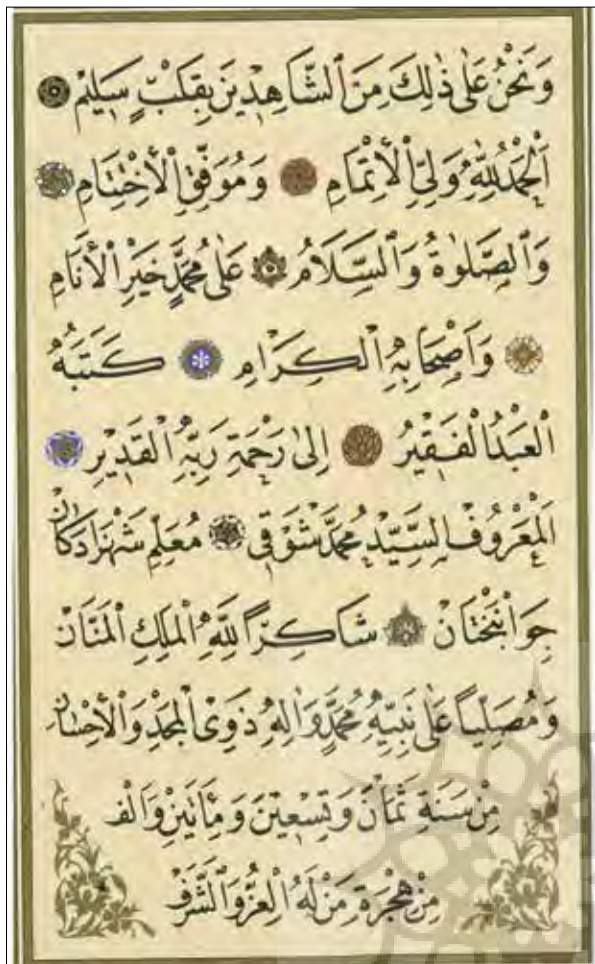 وَنَحْنُ عَلٰى ذٰلِكَ مِنَ الشَّاهِدِينَ بِقَلْبٍ سَلِيمٍ
اَلْحَمْدُ لِلّٰهِ وَلِيِّ الْاِتْمَامِ وَمُوَفِّقِ الْاِخْتِتَامِ
وَالصَّلٰوةُ وَالسَّلَامُ عَلٰى مُحَمَّدٍ خَيْرِ الْاَنَامِ
وَاَصْحَابِهِ الْكِرَامِ كَتَبَهُ
الْعَبْدُ الْفَقِيرُ اِلٰى رَحْمَةِ رَبِّهِ الْقَدِيرِ
الْمَعْرُوفُ السَّيِّدُ مُحَمَّد شَوْقِي مُعَلِّمِ شَهْزَادَكَانِ
جِوَانْبَخْتَانْ شَاكِرًا لِلّٰهِ الْمَلِكِ الْمَنَّانْ
وَمُصَلِّيًا عَلٰى نَبِيِّهِ مُحَمَّدٍ وَاٰلِهِ ذَوِي الْمَجْدِ وَالْاِحْسَانِ
مِنْ سَنَةِ ثَمَانٍ وَتِسْعِينَ وَمِأَتَيْنِ وَاَلْف
مِنْ هِجْرَةِ مَنْ لَهُ الْعِزُّ وَالشَّرَفُ